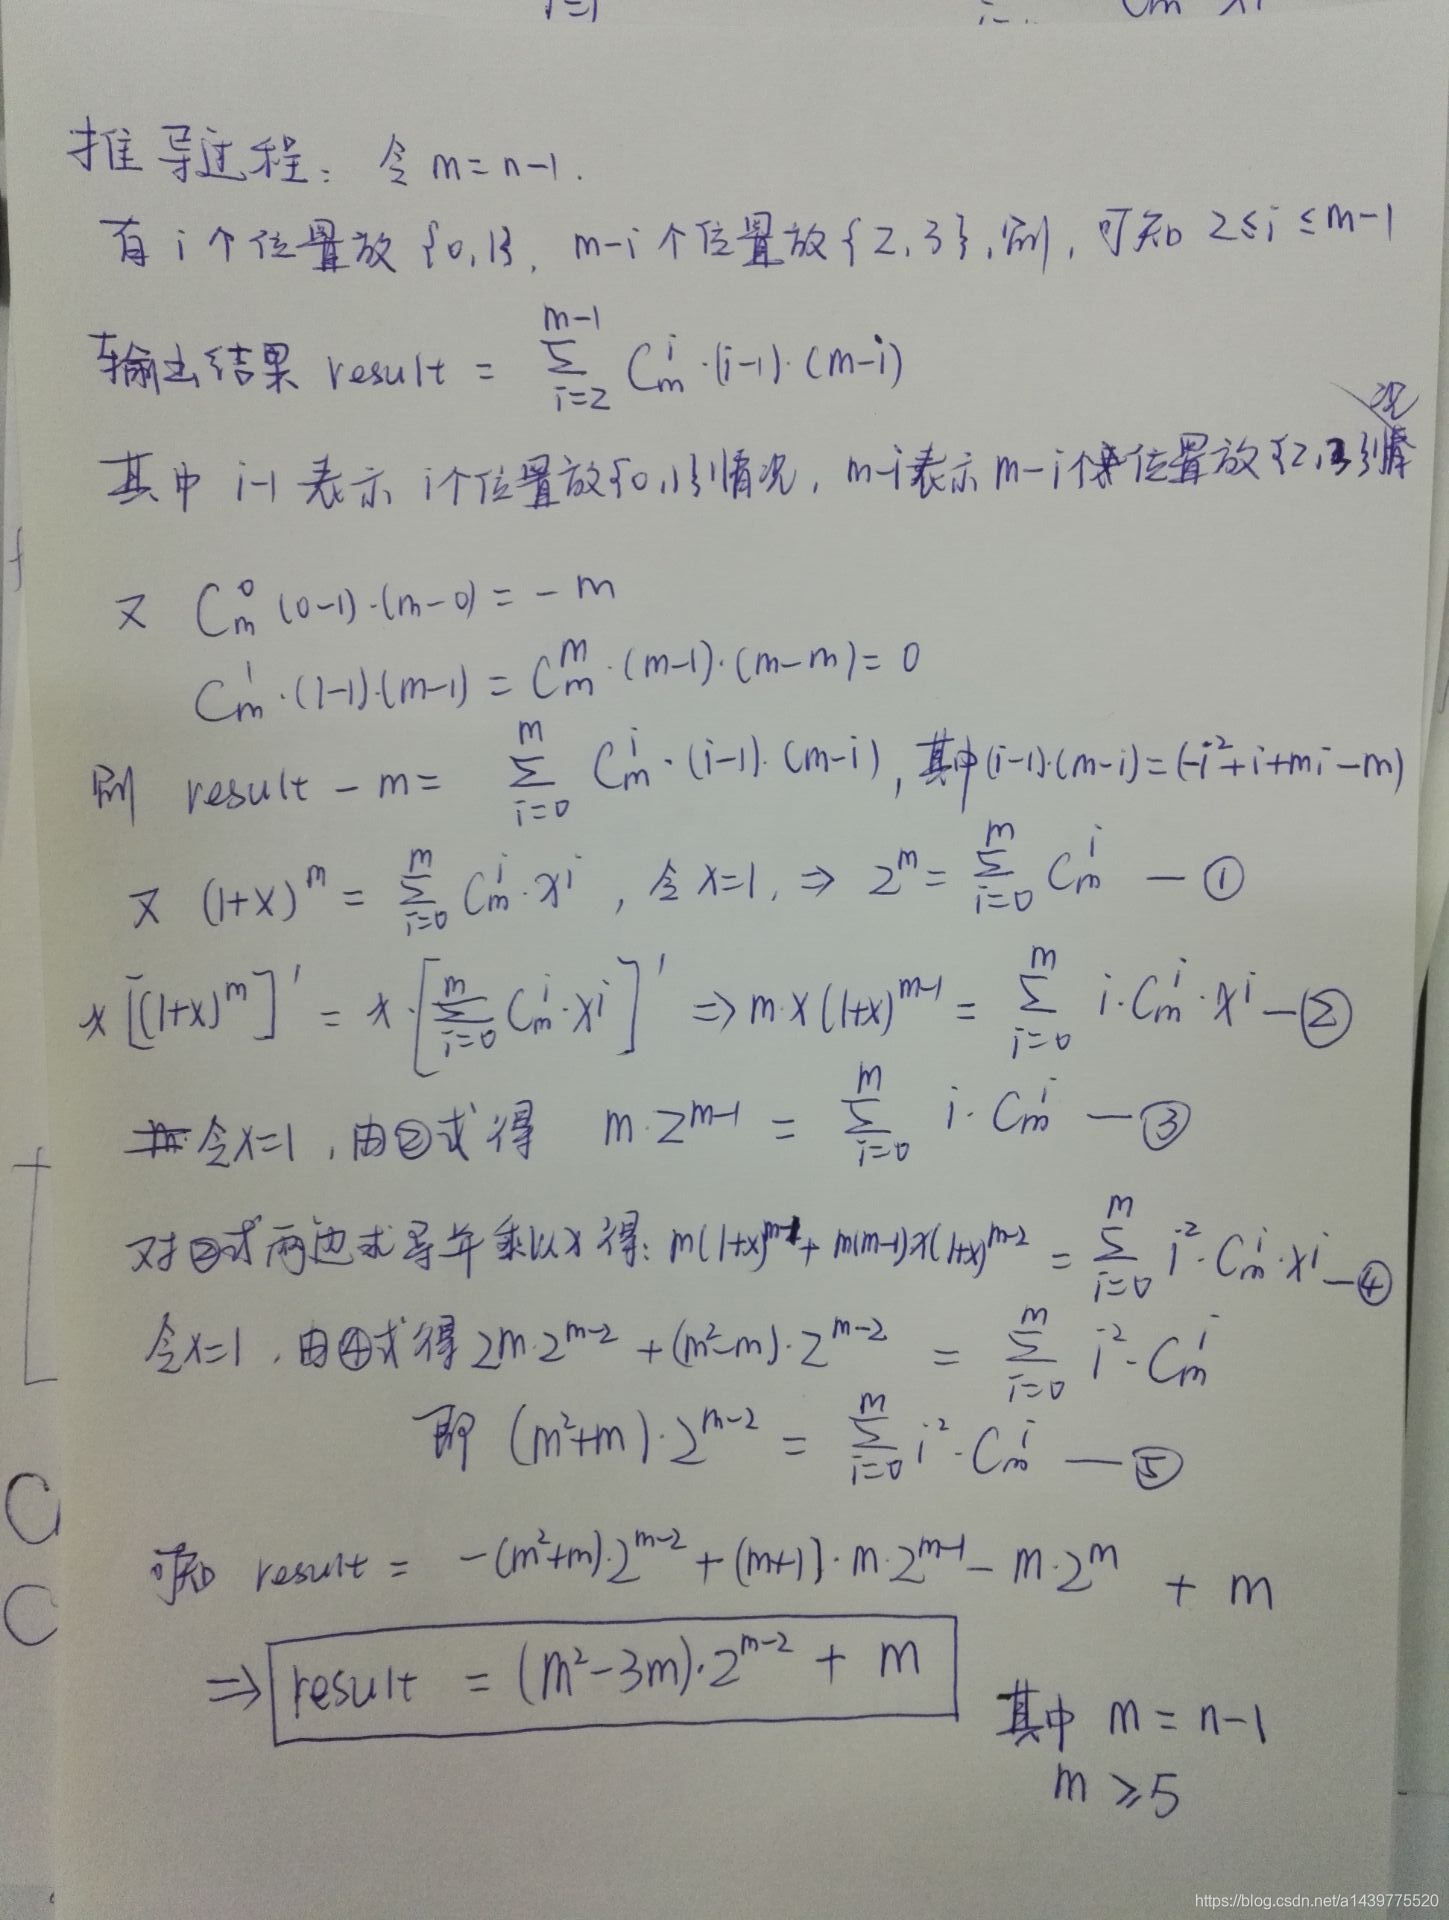 推导过程：令 m=n-1.
有 i 个位置放{0,1}, m-i 个位置放{2,3},则, 可知 2≤i≤m-1
输出结果 result = ∑_{i=2}^{m-1} C_m^i·(i-1)·(m-i)
其中 i-1 表示 i个位置放{0,1}情况, m-i表示 m-i个位置放{2,3}情况
又 C_m^0 (0-1)·(m-0) = -m
C_m^1·(1-1)·(m-1) = C_m^m·(m-1)·(m-m) = 0
则 result - m = ∑_{i=0}^{m} C_m^i·(i-1)·(m-i), 其中(i-1)·(m-i)=(-i²+i+mi-m)
又 (1+x)^m = ∑_{i=0}^{m} C_m^i·x^i , 令 x=1, ⇒ 2^m = ∑_{i=0}^{m} C_m^i — ①
x[(1+x)^m]' = x·[∑_{i=0}^{m} C_m^i·x^i]' ⇒ m·x(1+x)^{m-1} = ∑_{i=0}^{m} i·C_m^i·x^i — ②
令x=1, 由②式得 m·2^{m-1} = ∑_{i=0}^{m} i·C_m^i — ③
对②式两边求导并乘以x得: m(1+x)^{m-1} + m(m-1)x(1+x)^{m-2} = ∑_{i=0}^{m} i²·C_m^i·x^i — ④
令x=1, 由④式得 2m·2^{m-2} + (m²-m)·2^{m-2} = ∑_{i=0}^{m} i²·C_m^i
即 (m²+m)·2^{m-2} = ∑_{i=0}^{m} i²·C_m^i — ⑤
可知 result = -(m²+m)·2^{m-2} + (m+1)·m·2^{m-1} - m·2^m + m
⇒ result = (m²-3m)·2^{m-2} + m
其中 m = n-1
m ≥ 5
https://blog.csdn.net/a1439775520